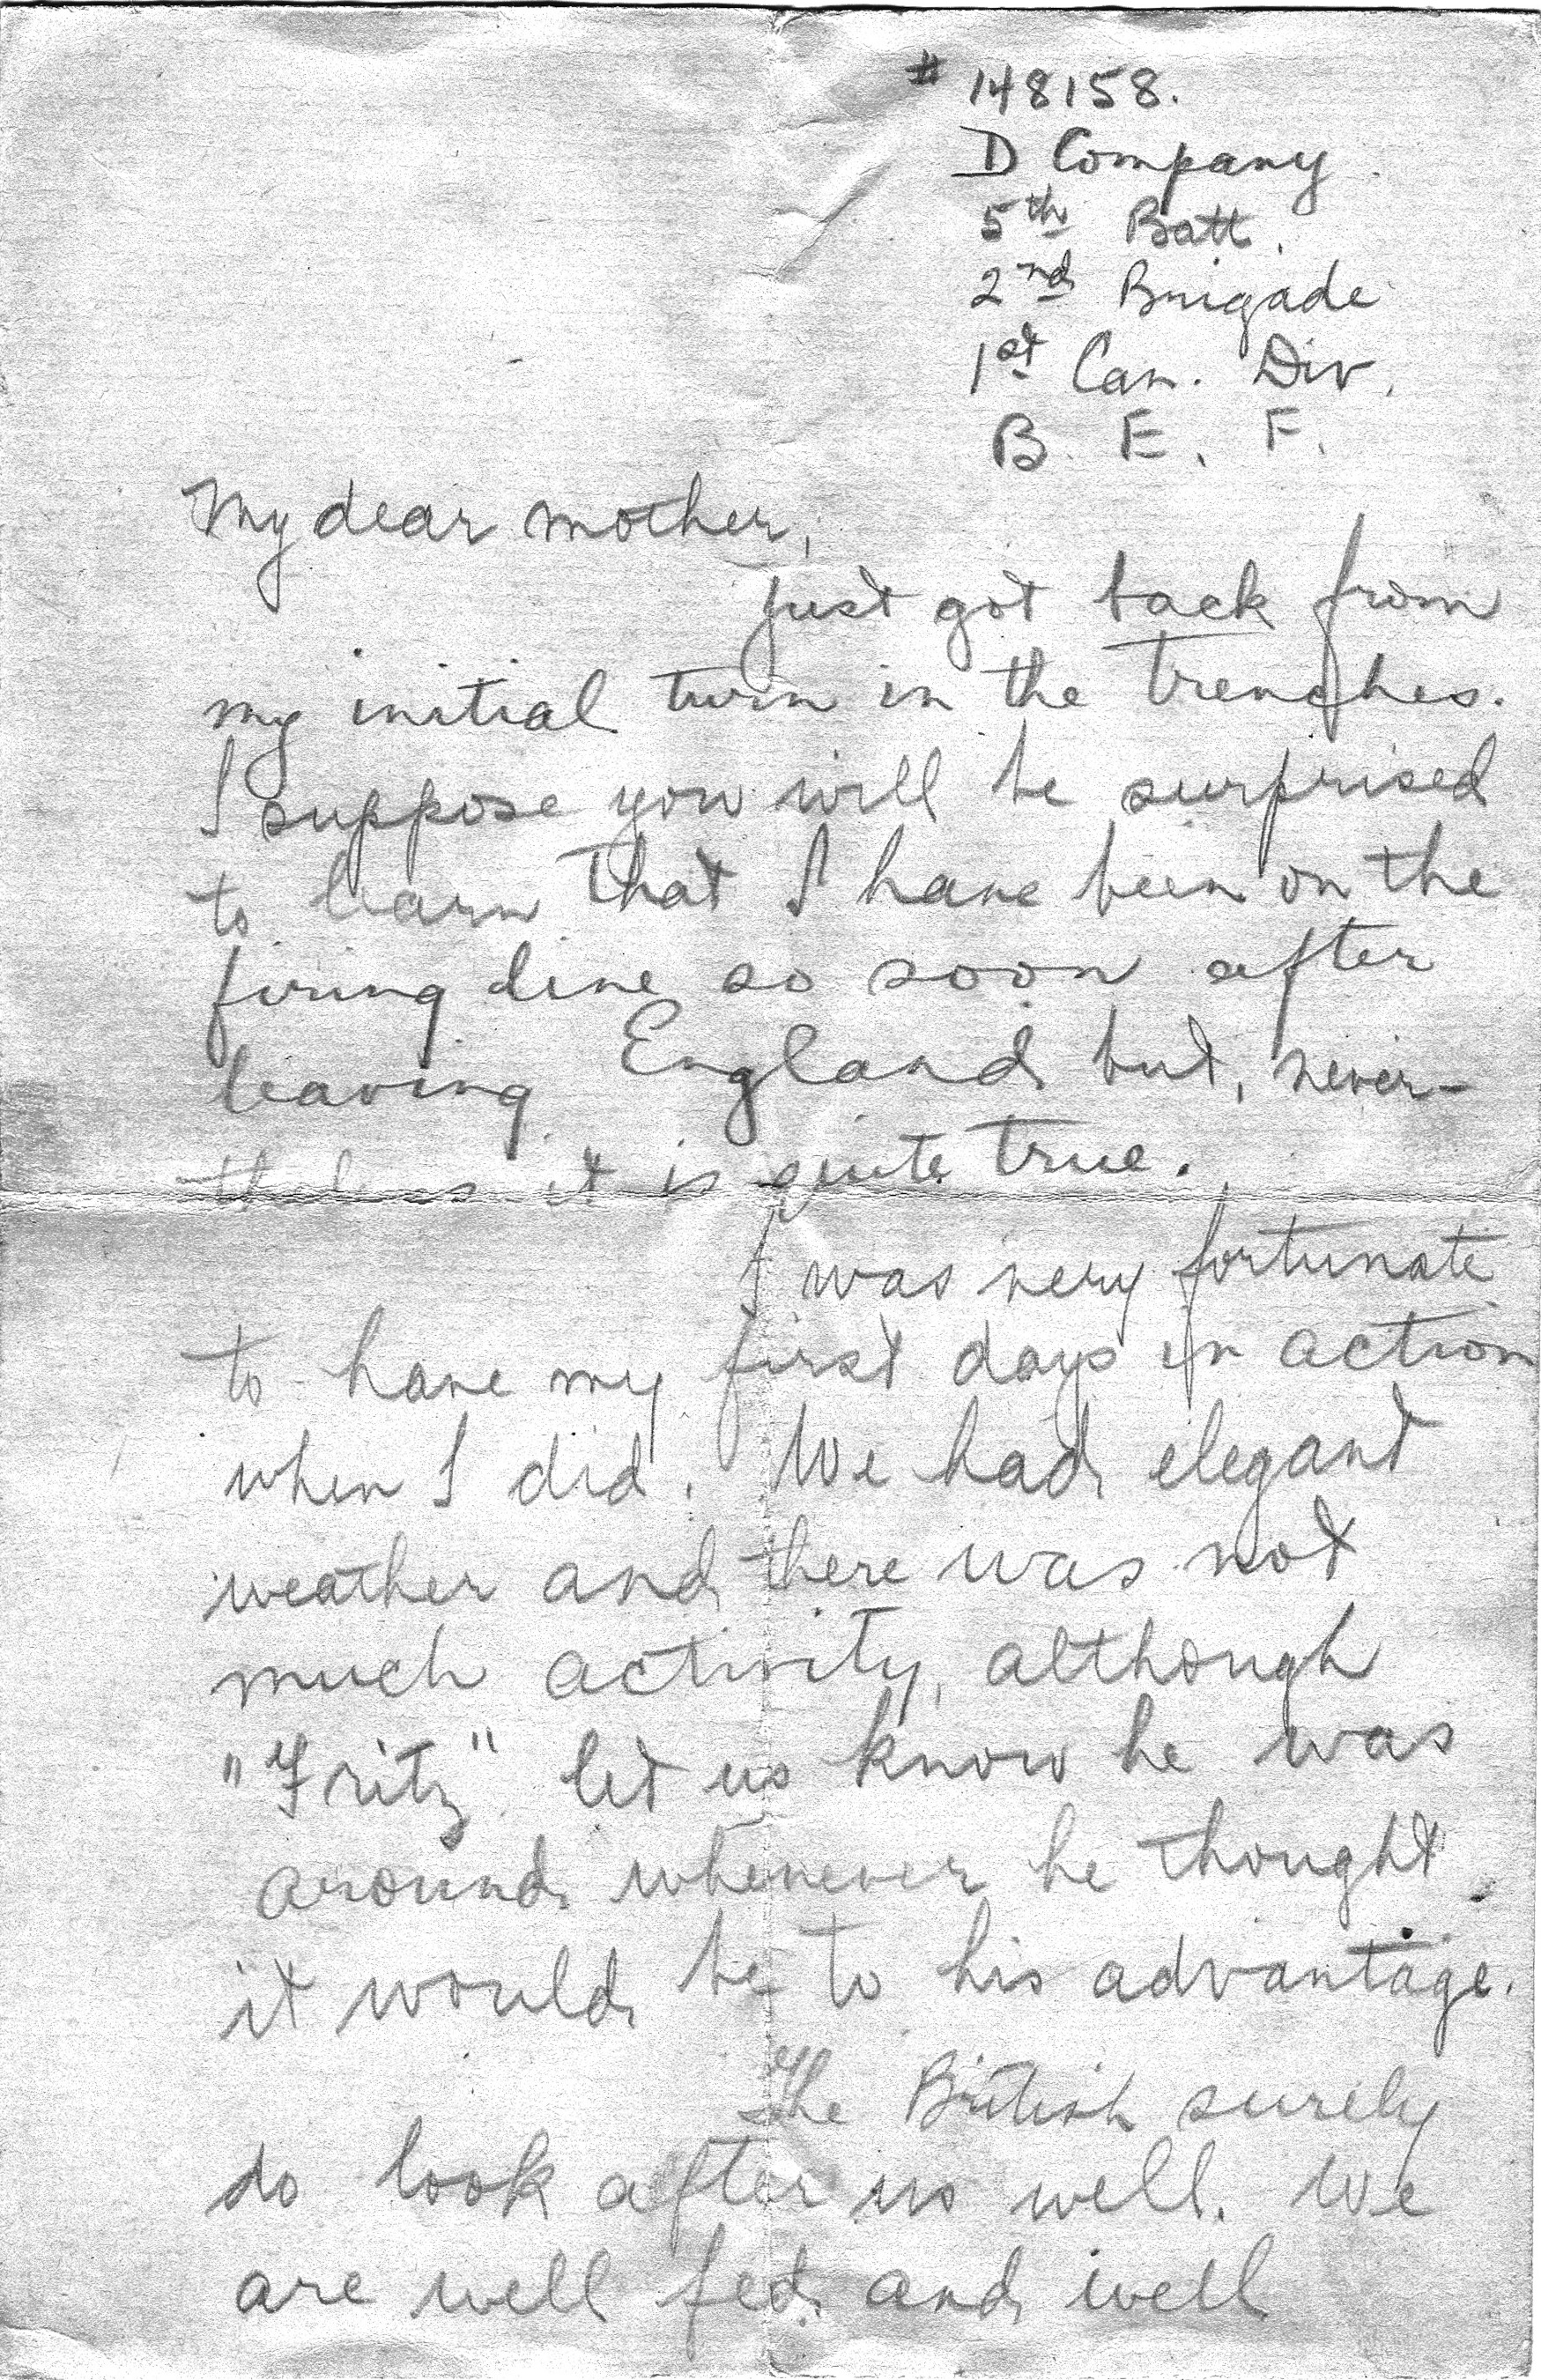 # 148158.
D Company.
5th Batt.
2nd Brigade
1st Can. Div.
B. E. F.
My dear mother,
Just got back from
my initial turn in the trenches.
I suppose you will be surprised
to learn that I have been on the
firing line so soon after
leaving England but, never-
theless it is quite true.
I was very fortunate
to have my first days in action
when I did. We had elegant
weather and there was not
much activity, although
"Fritz" let us know he was
around whenever he thought
it would be to his advantage.
The British surely
do look after us well. We
are well fed and well